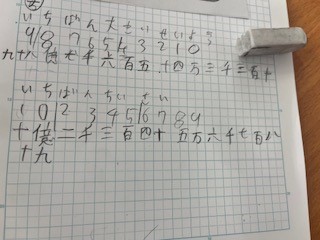 いちばん大
9876543210
九十八億七千六百五十四万三千二百十
いちばんちいさい
1023456789
十億二千三百四十五万六千七百八
十九